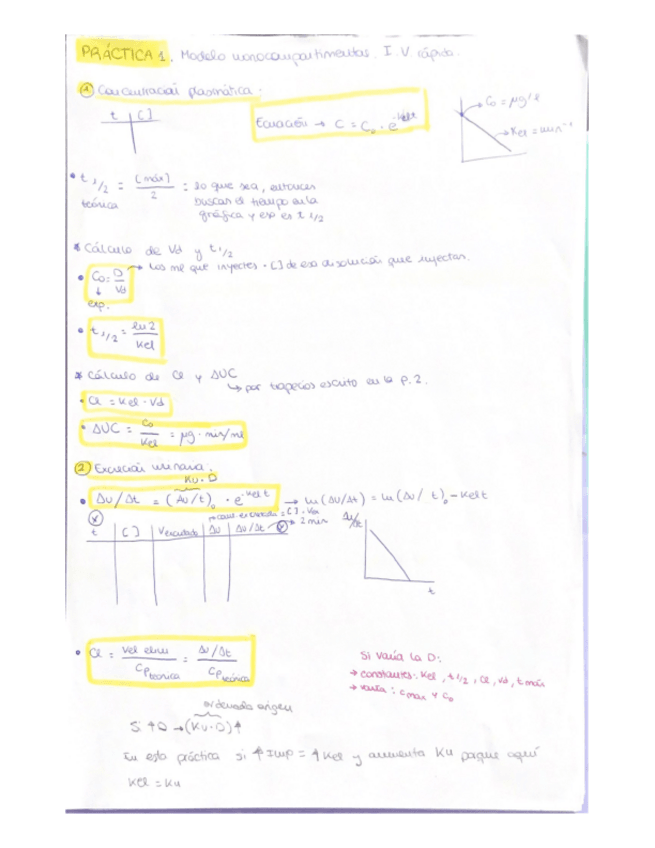 PRÁCTICA 1. Modelo monocompartimental. I.V rápida.
1 Concentración plasmática.
t | [ ]
Ecuación → C = C₀ · e^-kelt
C₀ = µg/ml
Kel = min⁻¹
• t 1/2 teórica = [máx]/2 = lo que sea, entonces
buscar el tiempo en la
gráfica y eso es t 1/2
* Cálculo de Vd y t 1/2
• C₀ = D/Vd → los ml que inyectes · [ ] de esa disolución que inyectas.
↓
exp.
• t 1/2 = ln 2/Kel
* Cálculo de Cl y AUC
↳ por trapecios escrito en la P. 2.
• Cl = Kel · Vd
• AUC = C₀/Kel = µg · min/ml
2 Excreción urinaria.
Ku · D
• ΔU/Δt = (ΔU/t)₀ · e^-kelt → ln (ΔU/Δt) = ln (ΔU/ t)₀ - Kelt
t | [ ] | V excretado | ΔU | ΔU/Δt
2 min
ΔU/Δt
t
• Cl = vel elim/Cp teórica = ΔU/Δt/Cp teórica
Si varía la D:
→ constantes: Kel, t 1/2, Cl, Vd, t máx
→ varía: Cmax y C₀
ordenada origen
Si ↑D → (Ku·D)↑
En esta práctica si ↑ Imp = ↑ Kel y aumenta Ku porque aquí
Kel = Ku